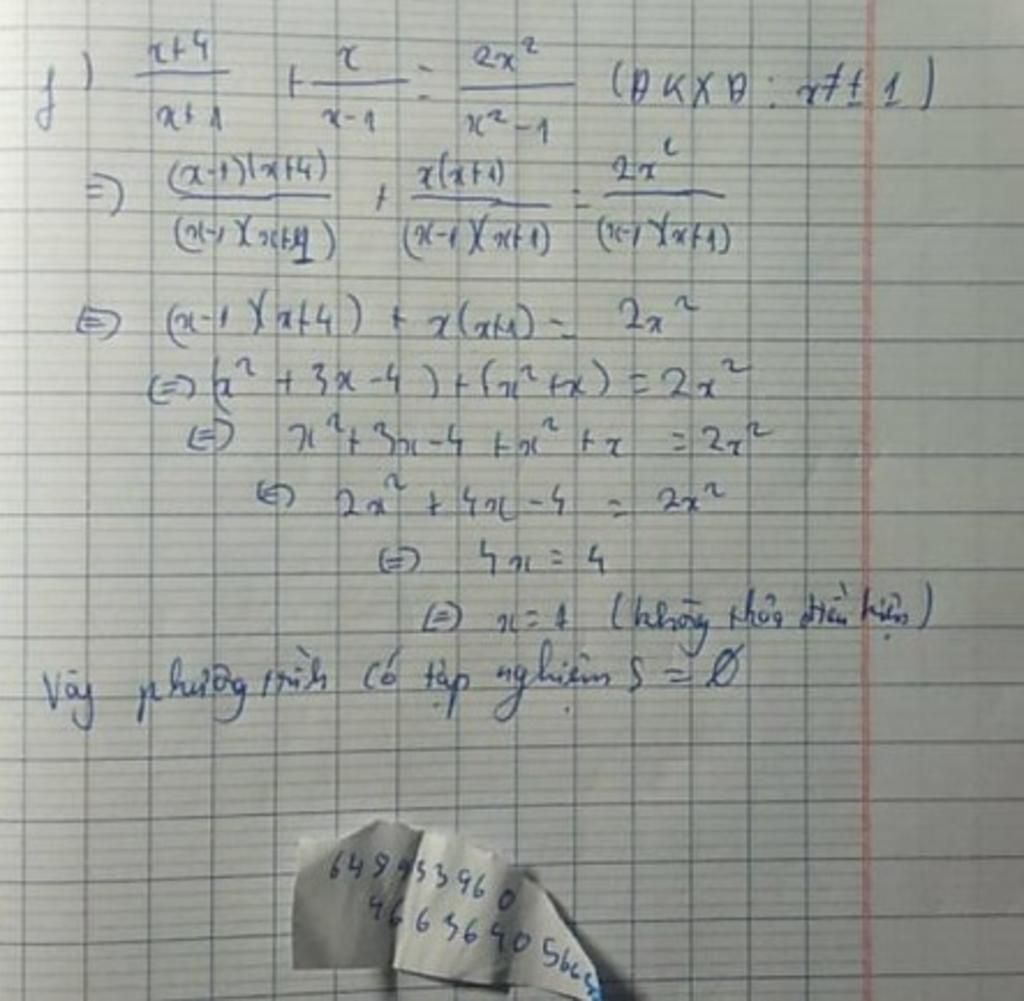 f) \frac{x+4}{x+1} + \frac{x}{x-1} = \frac{2x^2}{x^2-1} (ĐKXĐ: x ≠ ± 1)
=> \frac{(x-1)(x+4)}{(x-1)(x+1)} + \frac{x(x+1)}{(x-1)(x+1)} = \frac{2x^2}{(x-1)(x+1)}
<=> (x-1)(x+4) + x(x+1) = 2x^2
<=> (x^2 + 3x - 4) + (x^2 + x) = 2x^2
<=> x^2 + 3x - 4 + x^2 + x = 2x^2
<=> 2x^2 + 4x - 4 = 2x^2
<=> 4x = 4
<=> x = 1 (không thỏa điều kiện)
Vậy phương trình có tập nghiệm S = Ø